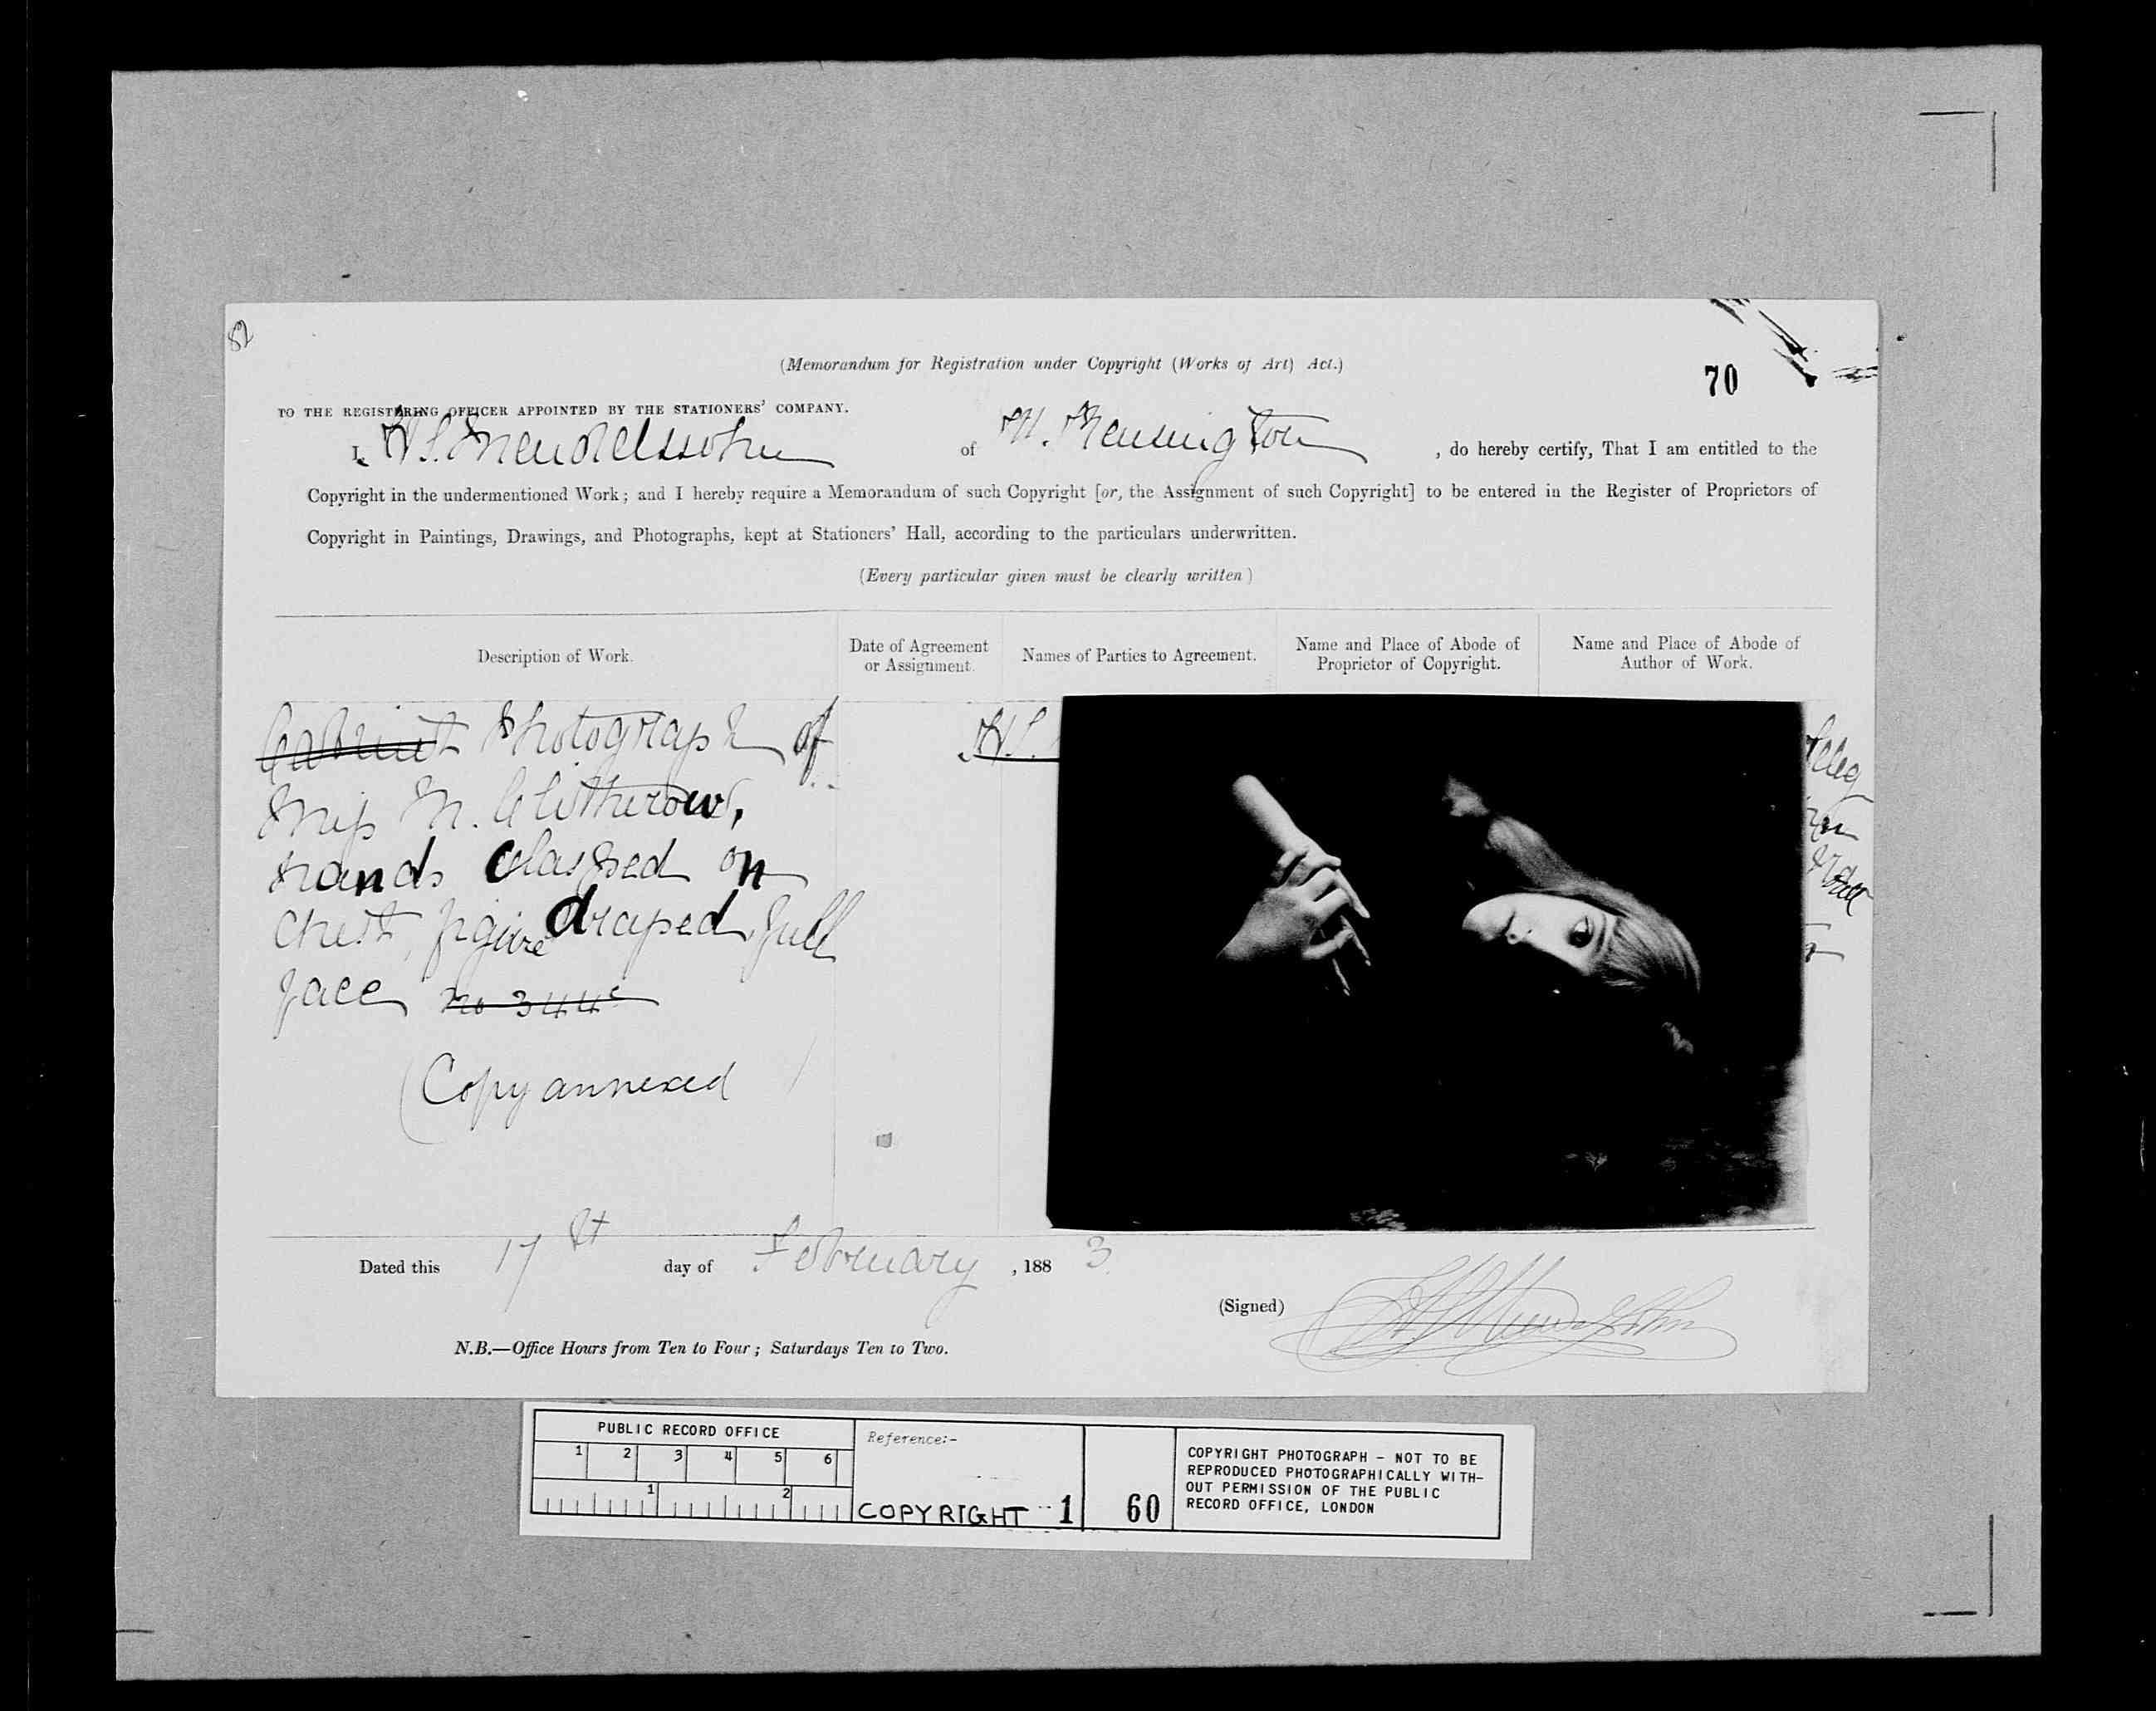 82
(Memorandum for Registration under Copyright (Works of Art) Act.)
70
TO THE REGISTERING OFFICER APPOINTED BY THE STATIONERS' COMPANY.
I, H S. Mendelssohn of N. Kensington, do hereby certify, That I am entitled to the
Copyright in the undermentioned Work; and I hereby require a Memorandum of such Copyright [or, the Assignment of such Copyright] to be entered in the Register of Proprietors of
Copyright in Paintings, Drawings, and Photographs, kept at Stationers' Hall, according to the particulars underwritten.
(Every particular given must be clearly written)
Description of Work.
Date of Agreement
or Assignment.
Names of Parties to Agreement.
Name and Place of Abode of
Proprietor of Copyright.
Name and Place of Abode of
Author of Work.
Cabinet Photograph of
Miss M. Clitherow,
hands Clasped on
Chest, figure draped, full
face no 344c
(Copy annexed
H S.
Dated this 17th day of February, 1883
(Signed) H S Mendelssohn
N.B.—Office Hours from Ten to Four; Saturdays Ten to Two.
PUBLIC RECORD OFFICE
1 2 3 4 5 6
1 2
Reference:-
COPYRIGHT 1
60
COPYRIGHT PHOTOGRAPH - NOT TO BE
REPRODUCED PHOTOGRAPHICALLY WITH-
OUT PERMISSION OF THE PUBLIC
RECORD OFFICE, LONDON